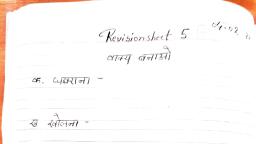 Revisionsheet 5
वाक्य बनाओ
क. घबराना -
ख खोजना -